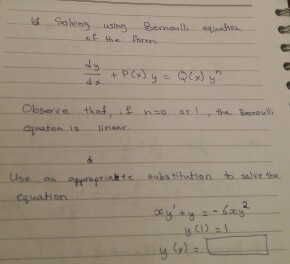 Solving using Bernoulli equation
of the form
dy/dx + P(x) y = Q(x) yⁿ
Observe that, if n=0 or 1, the Bernoulli
equation is linear.
Use an appropriate substitution to solve the
equation
xy' + y = -6xy²
y(1) = 1
y(x) =